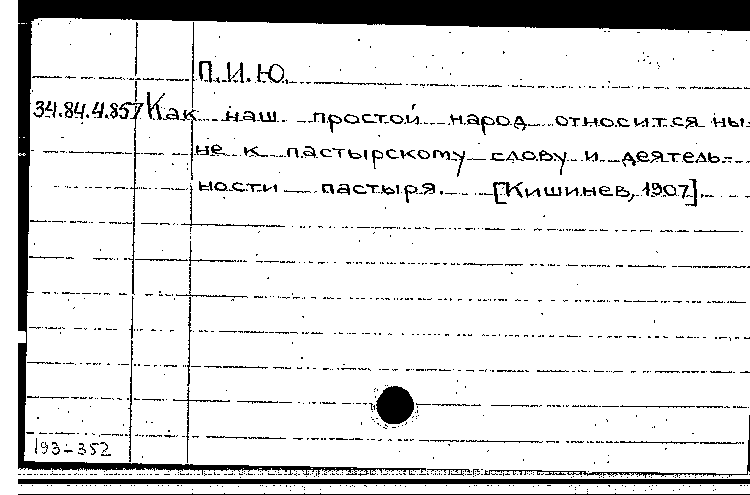 П.И.Ю.
34.84.4.857 Как наш простой народ относится ны-
не к пастырскому слову и деятель-
ности пастыря. [Кишинев, 1907].
193-352